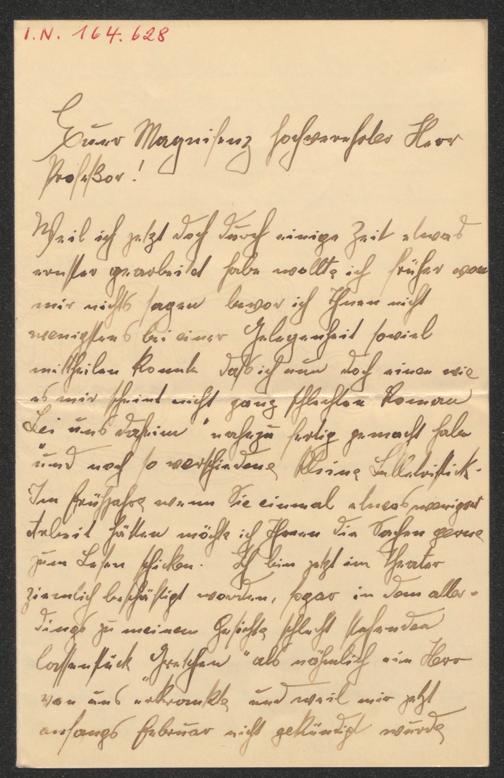 I.N. 164.628
Euer Magnifizenz hochverehrter Herr
Professor!
Weil ich jetzt doch durch einige Zeit etwas
ernster gearbeitet habe wollte ich früher von
mir nichts sagen bevor ich Ihnen nicht
wenigstens bei einer Gelegenheit soviel
mittheilen konnte daß ich nun doch einen wie
es mir scheint nicht ganz schlechten Roman
"Bei uns daheim" nahezu fertig gemacht habe
und noch so verschiedene kleine Belletristick.
Im Frühjahre wenn Sie einmal etwas weniger
Arbeit hätten möchte ich Ihnen die Sachen gerne
zum Lesen schicken. Ich bin jetzt im Theater
ziemlich beschäftigt worden, sogar in dem aller-
dings zu meinem Gesichte schlecht stehenden
Possenstück "Gretchen" als nähmlich ein Herr
von uns erkrankte und weil mir jetzt
anfangs Februar nicht gekündigt wurde